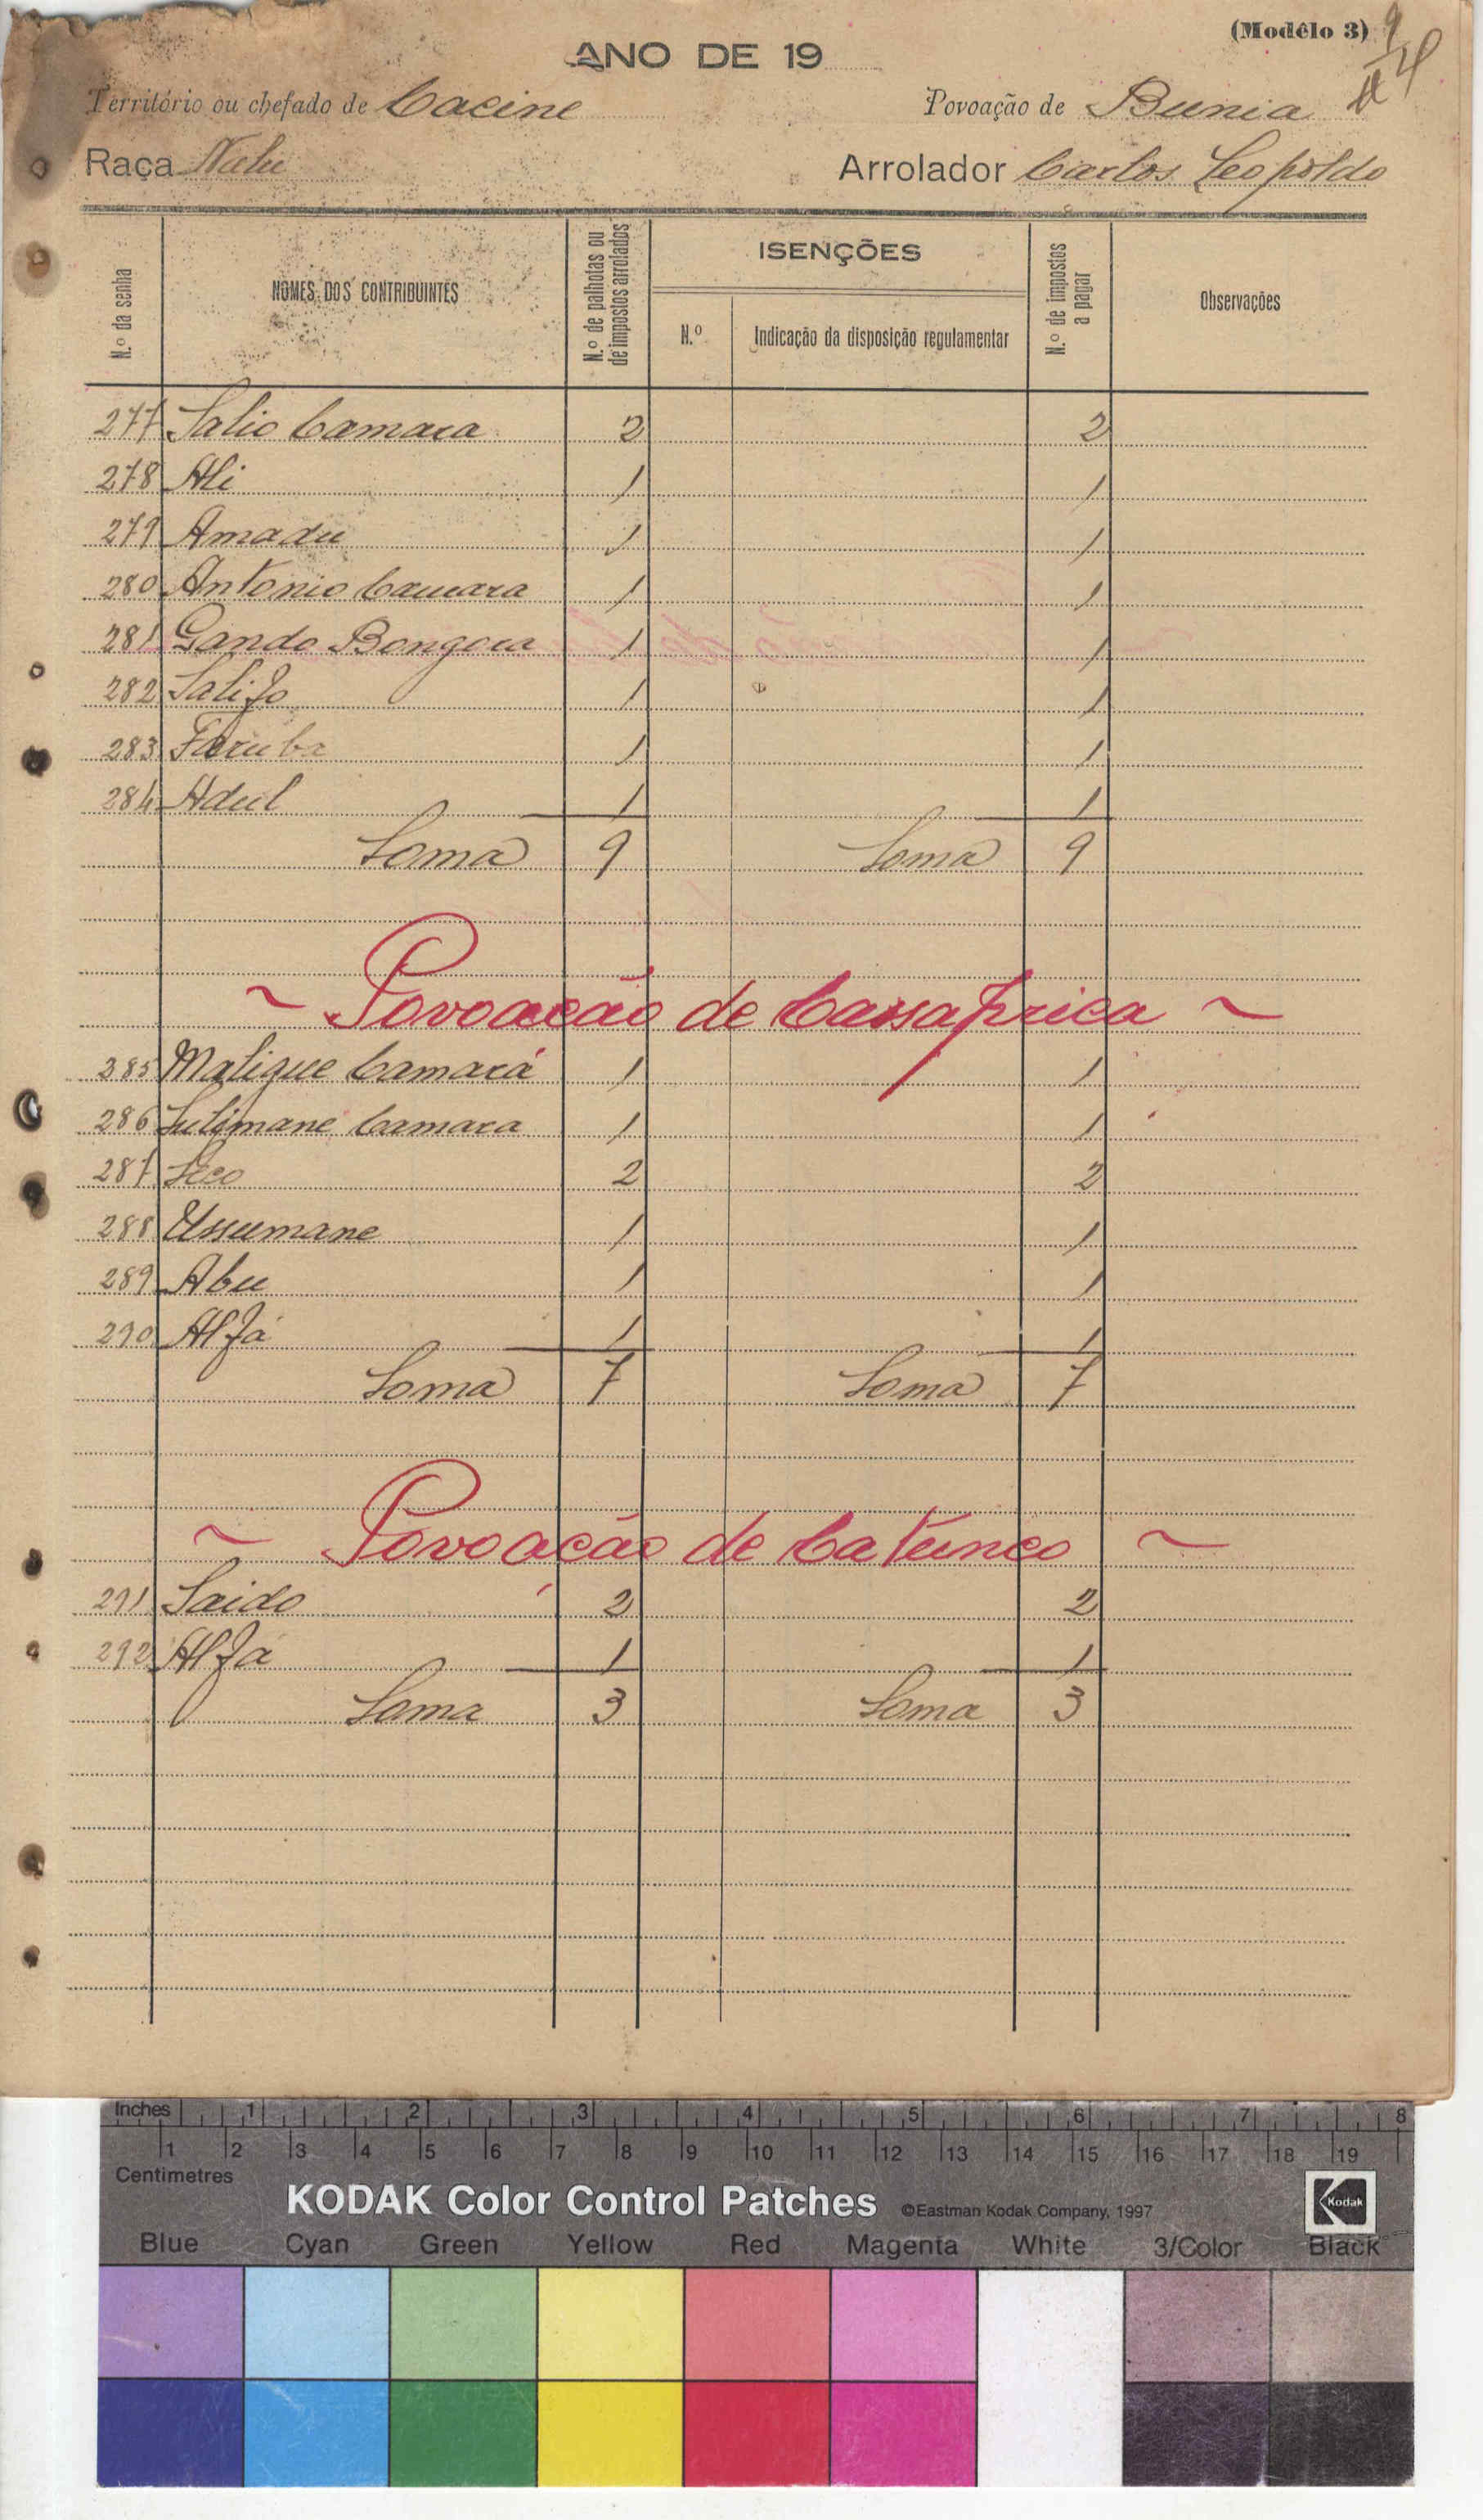 (Modêlo 3) 9
ANO DE 19
Território ou chefado de Cacine Povoação de Bunia
Raça Nalu Arrolador Carlos Leopoldo
N.º da senha NOMES DOS CONTRIBUINTES N.º de palhotas ou de impostos arrolados ISENÇÕES N.º de impostos a pagar Observações
N.º Indicação da disposição regulamentar
277 Salio Camara 2 2
278 Ali 1 1
279 Amadu 1 1
280 Antonio Camara 1 1
281 Gando Bongora 1 1
282 Salifo 1 1
283 Faruba 1 1
284 Adul 1 1
Soma 9 Soma 9
~ Povoação de Cassaprica ~
285 Malique Camará 1 1
286 Sulimane Camara 1 1
287 Seco 2 2
288 Ussumane 1 1
289 Abu 1 1
290 Alfá 1 1
Soma 7 Soma 7
~ Povoação de Catunco ~
291 Saido 2 2
292 Alfá 1 1
Soma 3 Soma 3
Inches 1 2 3 4 5 6 7 8
1 2 3 4 5 6 7 8 9 10 11 12 13 14 15 16 17 18 19
Centimetres
KODAK Color Control Patches ©Eastman Kodak Company, 1997 Kodak
Blue Cyan Green Yellow Red Magenta White 3/Color Black